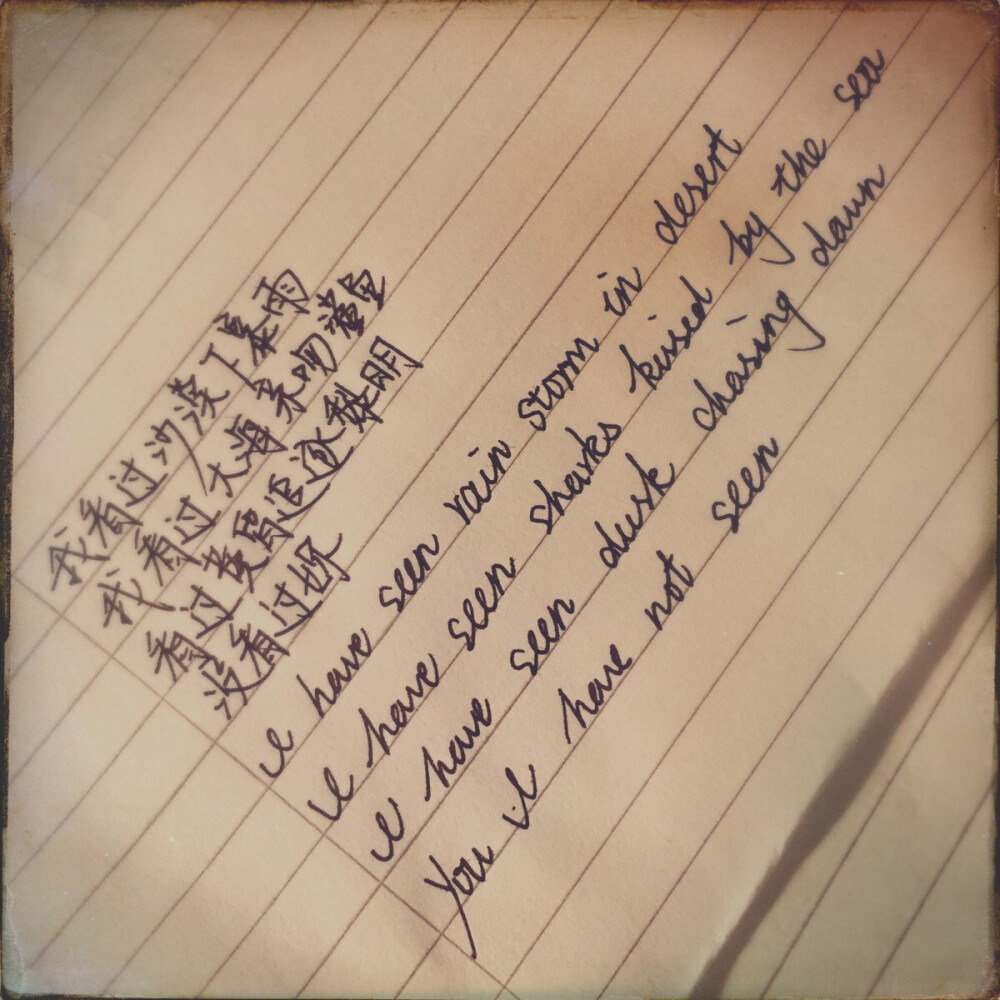 我看过沙漠下暴雨
我看过大海亲吻鲨鱼
看过黄昏追逐黎明
没看过你
I have seen rain storm in desert
I have seen sharks kissed by the sea
I have seen dusk chasing dawn
You I have not seen